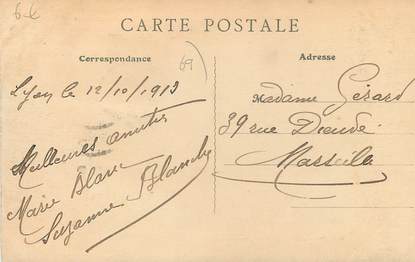 6-€
CARTE POSTALE
Correspondance
69
Adresse
Lyon le 12/10/1913
Meilleures amitiés
Marie Blanc
Suzanne Blanche
Madame Gérard
39 rue Dieudé
Marseille